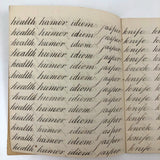 health humor idiom jasper knife k
health humor idiom jasper knife k
health humor idiom jasper knife
health humor idiom jasper knife
health humor idiom jasper knife
health humor idiom jasper knife
health humor idiom jasper knife
health humor idiom jasper knife
health humor idiom jasper knife
health humor idiom jasper knife
health humor idiom jasper knife
health humor idiom jasper knife